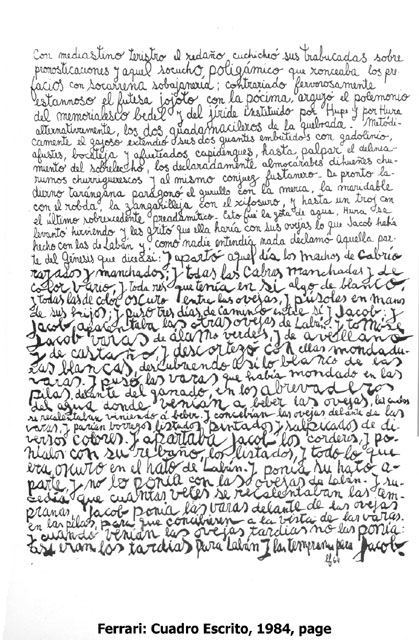 Con mediastino teristro el redaño, cuchicheó sus trabucadas sobre
pronosticaciones y aquel socucho, poligámico que ronceaba los pre
facios con socarrena sobajanería; contrariado fervorosamente
estannoso el futesa jojoto con la pócima, arguyó el polemonio
del memorialesco bedel y del iríde instituido por Hupe y por Hura
alternativamente, los dos guadamacileros de la quebrada. Metódi
camente el gayoso extendió sus dos guantes embutidos con gadolinio,
ajustes, bocateja y afustiados capidengues, hasta palpar el delinea
miento del sobrelecho, los declaradamente almocárabes dihueñes chu
rrumos churriguerescos y al mismo conjuez fustanero. De pronto la
dierno tarángana parágono el gurullo con la meria, la maridable
con el robda, la zangarilleja con el rifosuro, y hasta un troj con
el último sobrexcedente preadamítico. Esto fue la gota de agua, Hura se
levantó hirviendo y les gritó que ella haría con sus ovejas lo que Jacob había
hecho con las de Labán y, como nadie entendía nada declamó aquella par
te del Génesis que dice así: Y apartó aquel día los machos de cabrío
rayados y manchados; y todas las cabras manchadas y de
color vario; y toda res que tenía en sí algo de blanco,
y todas las de color oscuro entre las ovejas, y púsolas en manos
de sus hijos; y puso tres días de camino entre sí y Jacob: y
Jacob apacentaba las otras ovejas de Labán. Y tomóse
Jacob varas de álamo verdes, y de avellano
y de castaño, y descortezó en ellas mondadu
ras blancas, descubriendo así lo blanco de las
varas. Y puso las varas que había mondado en las
pilas, delante del ganado, en los abrevaderos
del agua donde venían a beber las ovejas, las cuales
se recalentaban viniendo a beber. Y concebían las ovejas delante de las
varas, y parían borregos listados, pintados y salpicados de di
versos colores. Y apartaba Jacob los corderos, y po
níalos con su rebaño, los listados, y todo lo que
era oscuro en el hato de Labán. Y ponía su hato a
parte, y no lo ponía con las ovejas de Labán. Y su
cedía que cuantas veces se recalentaban las tem
pranas, Jacob ponía las varas delante de las ovejas
en las pilas, para que concibiesen a la vista de las varas.
Y cuando venían las ovejas tardías no las ponía:
así eran las tardías para Labán y las tempranas para Jacob.
Ferrari: Cuadro Escrito, 1984, page